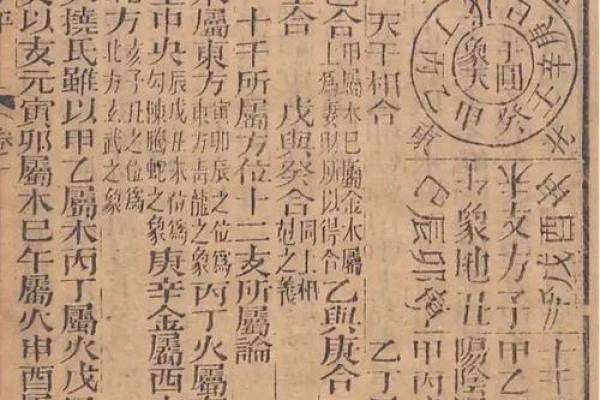 庚
辛壬
干圓
象天
甲
癸
乙丙丁
亥酉戌
支方子
象地丑
卯辰巳
十
甲乙
陽陰
甲丙
乙丁
天干相合
己合甲屬木巳屬金木屬
上爲妻財所以得合乙與庚合
合戊與癸合同上相
剋之義
十干所屬方位十二支所屬論
屬東方寅卯辰之位爲
東方青龍之象丙丁火屬
中央辰戌丑未位爲
勾陳騰蛇之象庚辛金屬西
方亥子丑之位爲
北方玄武之象
撓氏雖以甲乙屬木丙丁屬火戊
以亥元寅卯屬木巳午屬火申酉屬
平
卷一